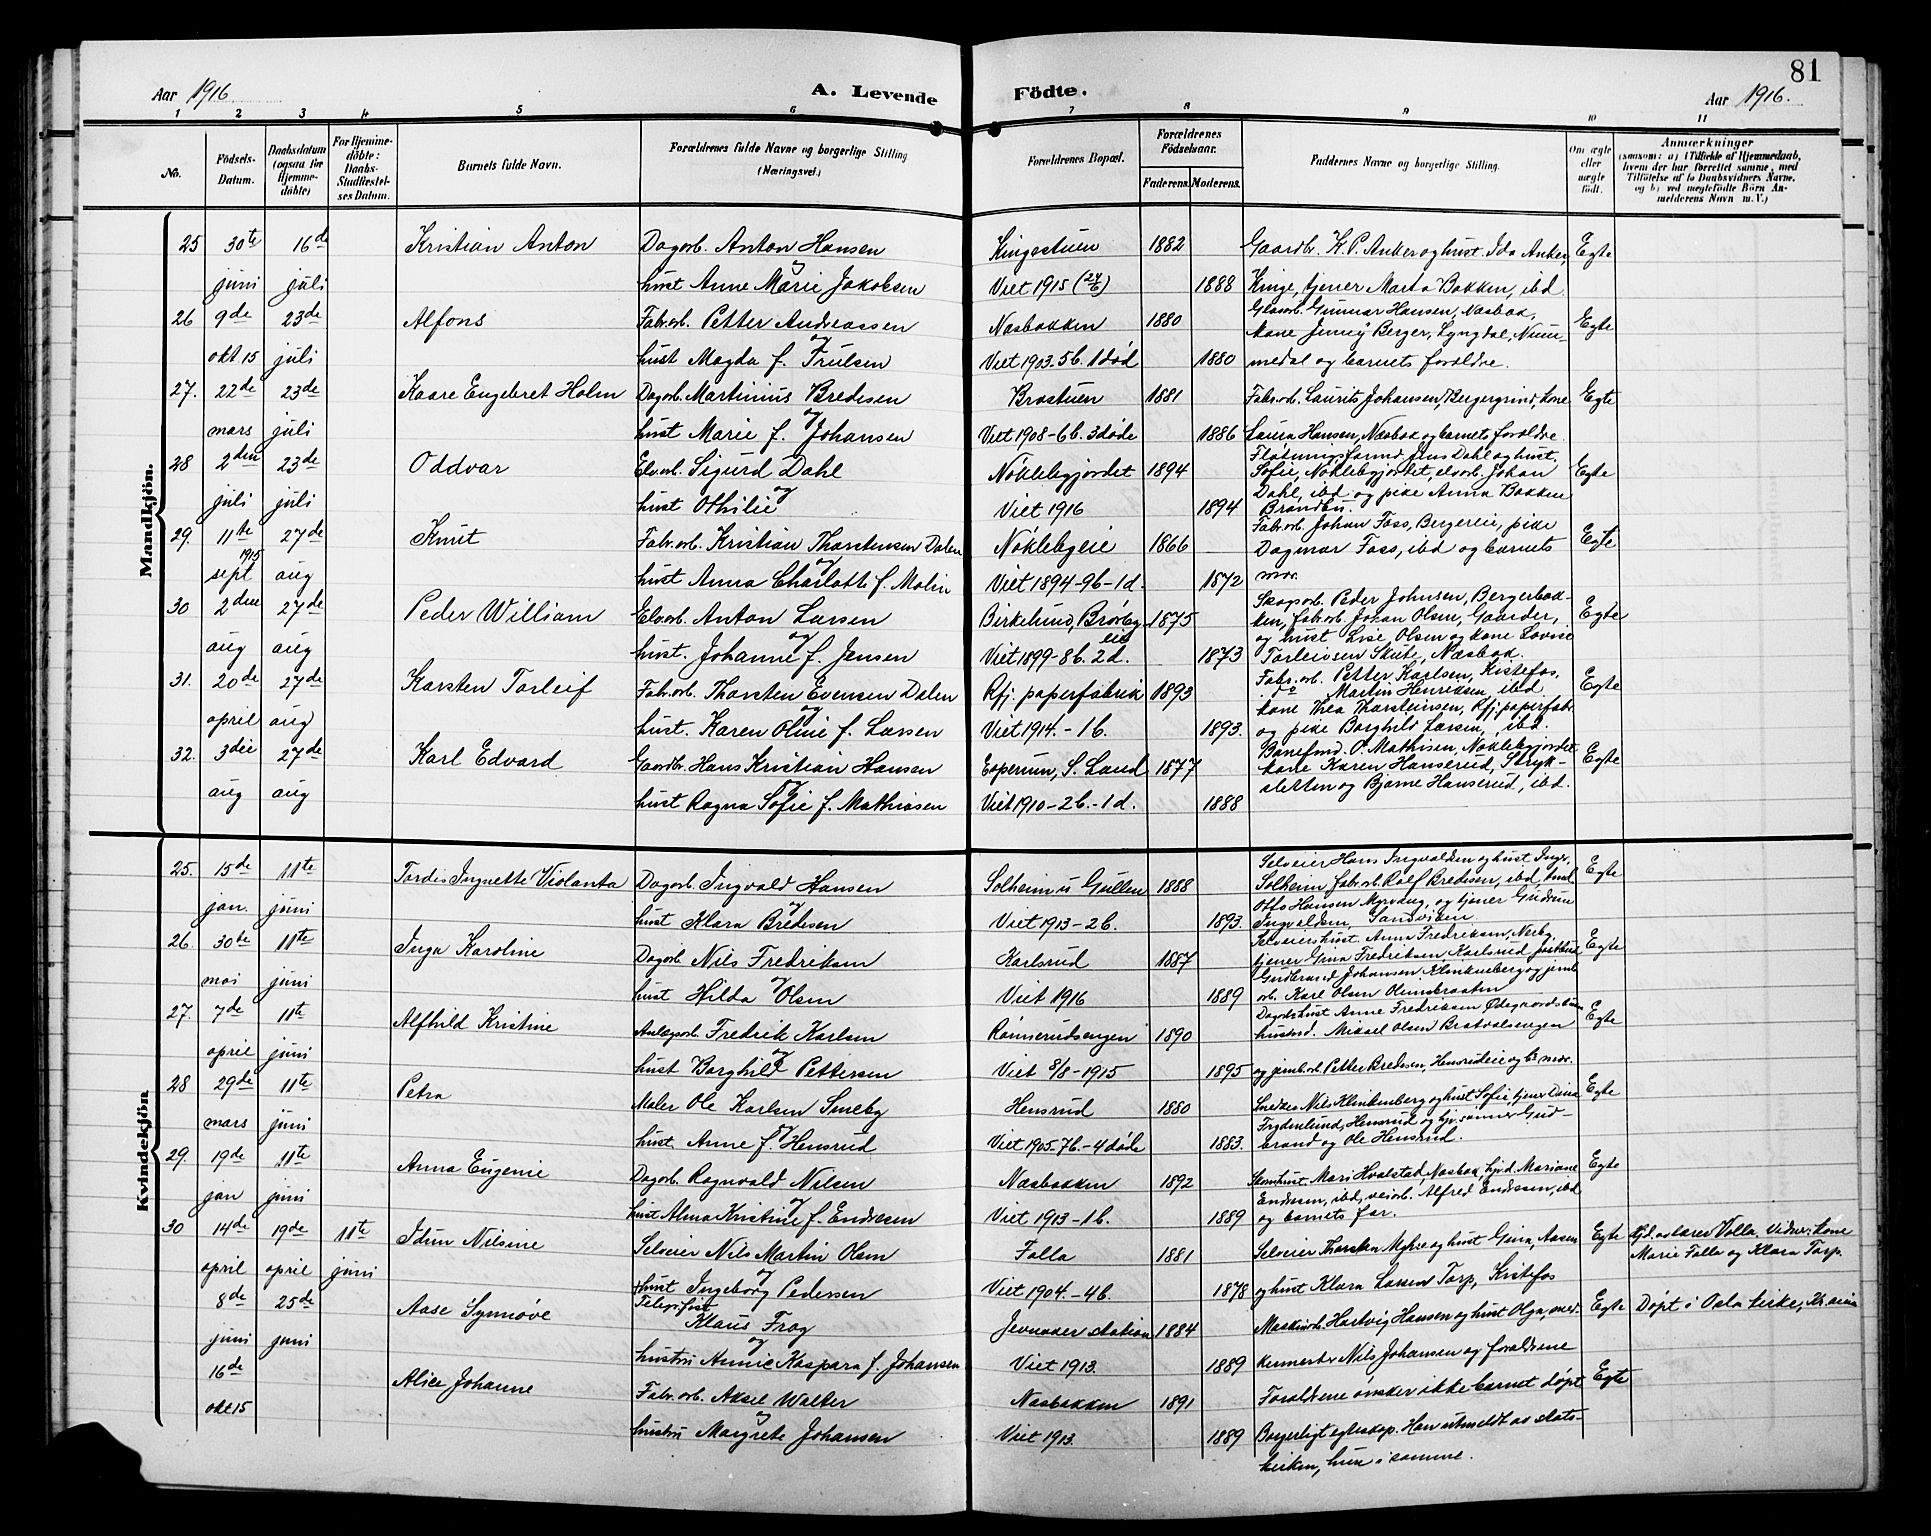 81
Aar 1916
A. Levende
Födte.
Aar 1916.
1 2 3 4 5 6 7 8 9 10 11
No.
Födsels-
Datum.
Daabsdatum
(ogsaa for
Hjemme-
döbte)
For Hjemme-
döbte:
Daabs-
Stadfæstel-
ses Datum.
Barnets fulde Navn.
Forældrenes fulde Navne og borgerlige Stilling
(Næringsvei.)
Forældrenes Bopæl.
Forældrenes
Födselsaar.
Faderens. Moderens.
Faddernes Navne og borgerlige Stilling.
Om ægte
eller
uægte
født.
Anmærkninger
(saasom: a) i Tilfælde af Hjemmedaab,
hvem der har forrettet samme, med
Tilföielse af to Daabsvidners Navne,
og b) ved uægtefödte Börn An-
melderens Navn m. V.)
Mandkjön.
25 30te 16de Kristian Anton Dagarb. Anton Hansen Kingestuen 1882 Gaardbr. K. P. Anker og hust. Ida Anker, Egte
og
juni juli hust Anne Marie Jakobsen Viet 1915 (24/6) 1888 Kinge, tjener Marta Bakken, ibd.
26 9de 23de Alfons Fabr.arb. Petter Andreassen Næsbakken 1880 Glasarb. Gunnar Hansen, Næsbak, Egte
og kone Jenny Berger, Lyngdal, Num-
okt 15 juli hust Magda f. Trulsen Viet 1903. 5 b. 1 død 1880 medal og barnets forældre.
27. 22de 23de Kaare Engebret Holm Dagarb. Martinius Bredesen Brostuen 1881 Fabr.arb. Laurits Johansen, Bergergrind, kone Egte
og
mars juli hust Marie f. Johansen Viet 1908 - 6 b. 3 døde 1886 Laura Hansen, Næsbak og barnets forældre.
28 2den 23de Oddvar Elvarb. Sigurd Dahl Nøklebygjordet 1894 Fløtningsformd. Jens Dahl og hust. Egte
og Sofie, Nøklebygjordet, elvarb. Johan
juli juli hust Othilie Viet 1916 1894 Dahl, ibd og pike Anna Bakken
Brandbu.
29. 11te 27de Knut Fabr.arb. Kristian Thorstensen Dalen Nøklebyeie 1866 Fabr.arb. Johan Foss, Bergereie, pike Egte
1915 og Dagmar Foss, ibd og barnets
sept aug hust Anna Charlotte f. Malin Viet 1894 - 9 b - 1 d. 1872 mor.
30 2den 27de Peder William Elvarb. Anton Larsen Birkelund, Brørby 1875 Skogsarb. Peder Johnsen, Bergerbak- Egte
og eie ken, fabr.arb. Johan Olsen, Gaarder,
aug aug hust. Johanne f. Jensen Viet 1899 - 8 b. 2 d. 1873 og hust Lise Olsen og kone Lovise
31. 20de 27de Karsten Torleif Fabr.arb. Thorsten Evensen Dalen Rfj. paperfabrik 1893 Fabr.arb. Petter Karlsen, Kistefos, Egte
og do Martin Henriksen, ibd
april aug hust. Karen Oline f. Larsen Viet 1914. - 1 b. 1893. kone Thea Thorsteinsen, Rfj. paperfabr.
og pike Borghild Larsen, ibd.
32. 3die 27de Karl Edvard Gaardbr. Hans Kristian Hansen Esperum, S. Land 1877 Banefmd. O. Mathisen, Nøklebygjordet Egte
og kone Karen Hanserud, Stryk-
aug aug hust Ragna Sofie f. Mathiasen Viet 1910 - 2 b. - 1 d. 1888 sletten og Bjarne Hanserud, ibd.
Kvindekjön
25. 15de 11te Tordis Ingnette Violanta Dagarb. Ingvald Hansen Solheim u Gullen 1888 Selveier Hans Ingvaldsen og hust Inger, Egte
og Solheim fabr.arb. Rolf Bredesen, ibd,
jan. juni hust Klara Bredesen Viet 1913 - 2 b. 1893. Otto Hansen og tjener Gudrun
Ingvaldsen, Sandviken.
26. 30te 11te Inga Karoline Dagarb. Nils Fredriksen Karlsrud 1887 Selveierhust. Anna Fredriksen, Egte
og tjener Gina Fredriksen Karlsrud
mai juni hust Hilda Olsen Viet 1916 1889 Gudbrand Johansen Klinkenberg og jernb.
arb. Karl Olsen
27. 7de 11te Alfhild Kristine Anlægsarb. Fredrik Karlsen Rønnerudsengen 1890 Anne Fredriksen Egte
og Mikael Olsen
april juni hust Borghild Pettersen Viet 8/8 - 1915 1895 og jernb.arb. Petter Bredesen, Hensrudeie og b's mor.
28 29de 11te Petra Maler Ole Karlsen Smeby Hensrud 1880 Snekker Nils Klinkenberg og hust Sofie, tjener Dina Egte
og Frydenlund, Hensrud og Gud-
mars juni hust. Anne f. Hensrud Viet 1905 - 7 b. - 4 døde 1883. brand og Ole Hensrud.
29. 19de 11te Anna Eugenie Dagarb. Ragnvald Nilsen Næsbakken 1892 Mari Hvalstad, Næsbak, Mariane Egte
og Endresen, ibd, veiarb. Alfred Endresen, ibd
jan juni hust Alma Kristine f. Endresen Viet 1913 - 1 b. 1889 og barnets far.
30 14de 19de 11te Idun Nilsine Selveier Nils Martin Olsen Falla 1881 Selveier Thorsten og hust Gina, Aasen Egte Hjd. av lærer Volla. Vidner: kone
og Marie Falla og Klara Torp.
april april juni hust Ingeborg Pedersen Viet 1904. - 4 b. 1878 og hust Klara Larsen Torp, Kistefos
8de 25de Aase Synnøve Telegrafist Klaus Frog Jevnaker station 1884 Maskinarb. Hartvig Hansen og hust Olga, Egte Døpt i Oslo kirke, Kr.ania
og
juni juni hustru Annie Kaspara f. Johansen Viet 1913. 1889 Nils Johansen og forældrene
16de Alice Johanne Fabr.arb. Aksel Walter Næsbakken 1891 Forældrene ønsker ikke barnet døpt Egte
og
okt 15 hustru Margrete Johansen Viet 1913. 1889 Borgerligt egteskap. Han utmeldt av stats-
kirken, hun i samme.